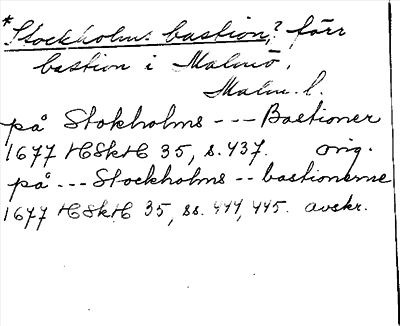 *Stockholms bastion? förr
bastion i Malmö.
Malm. l.
på Stokholms --- Bastioner
1677 HSkH 35, s. 437. orig.
på --- Stockholms -- bastionerne
1677 HSkH 35, ss. 444, 445. avskr.